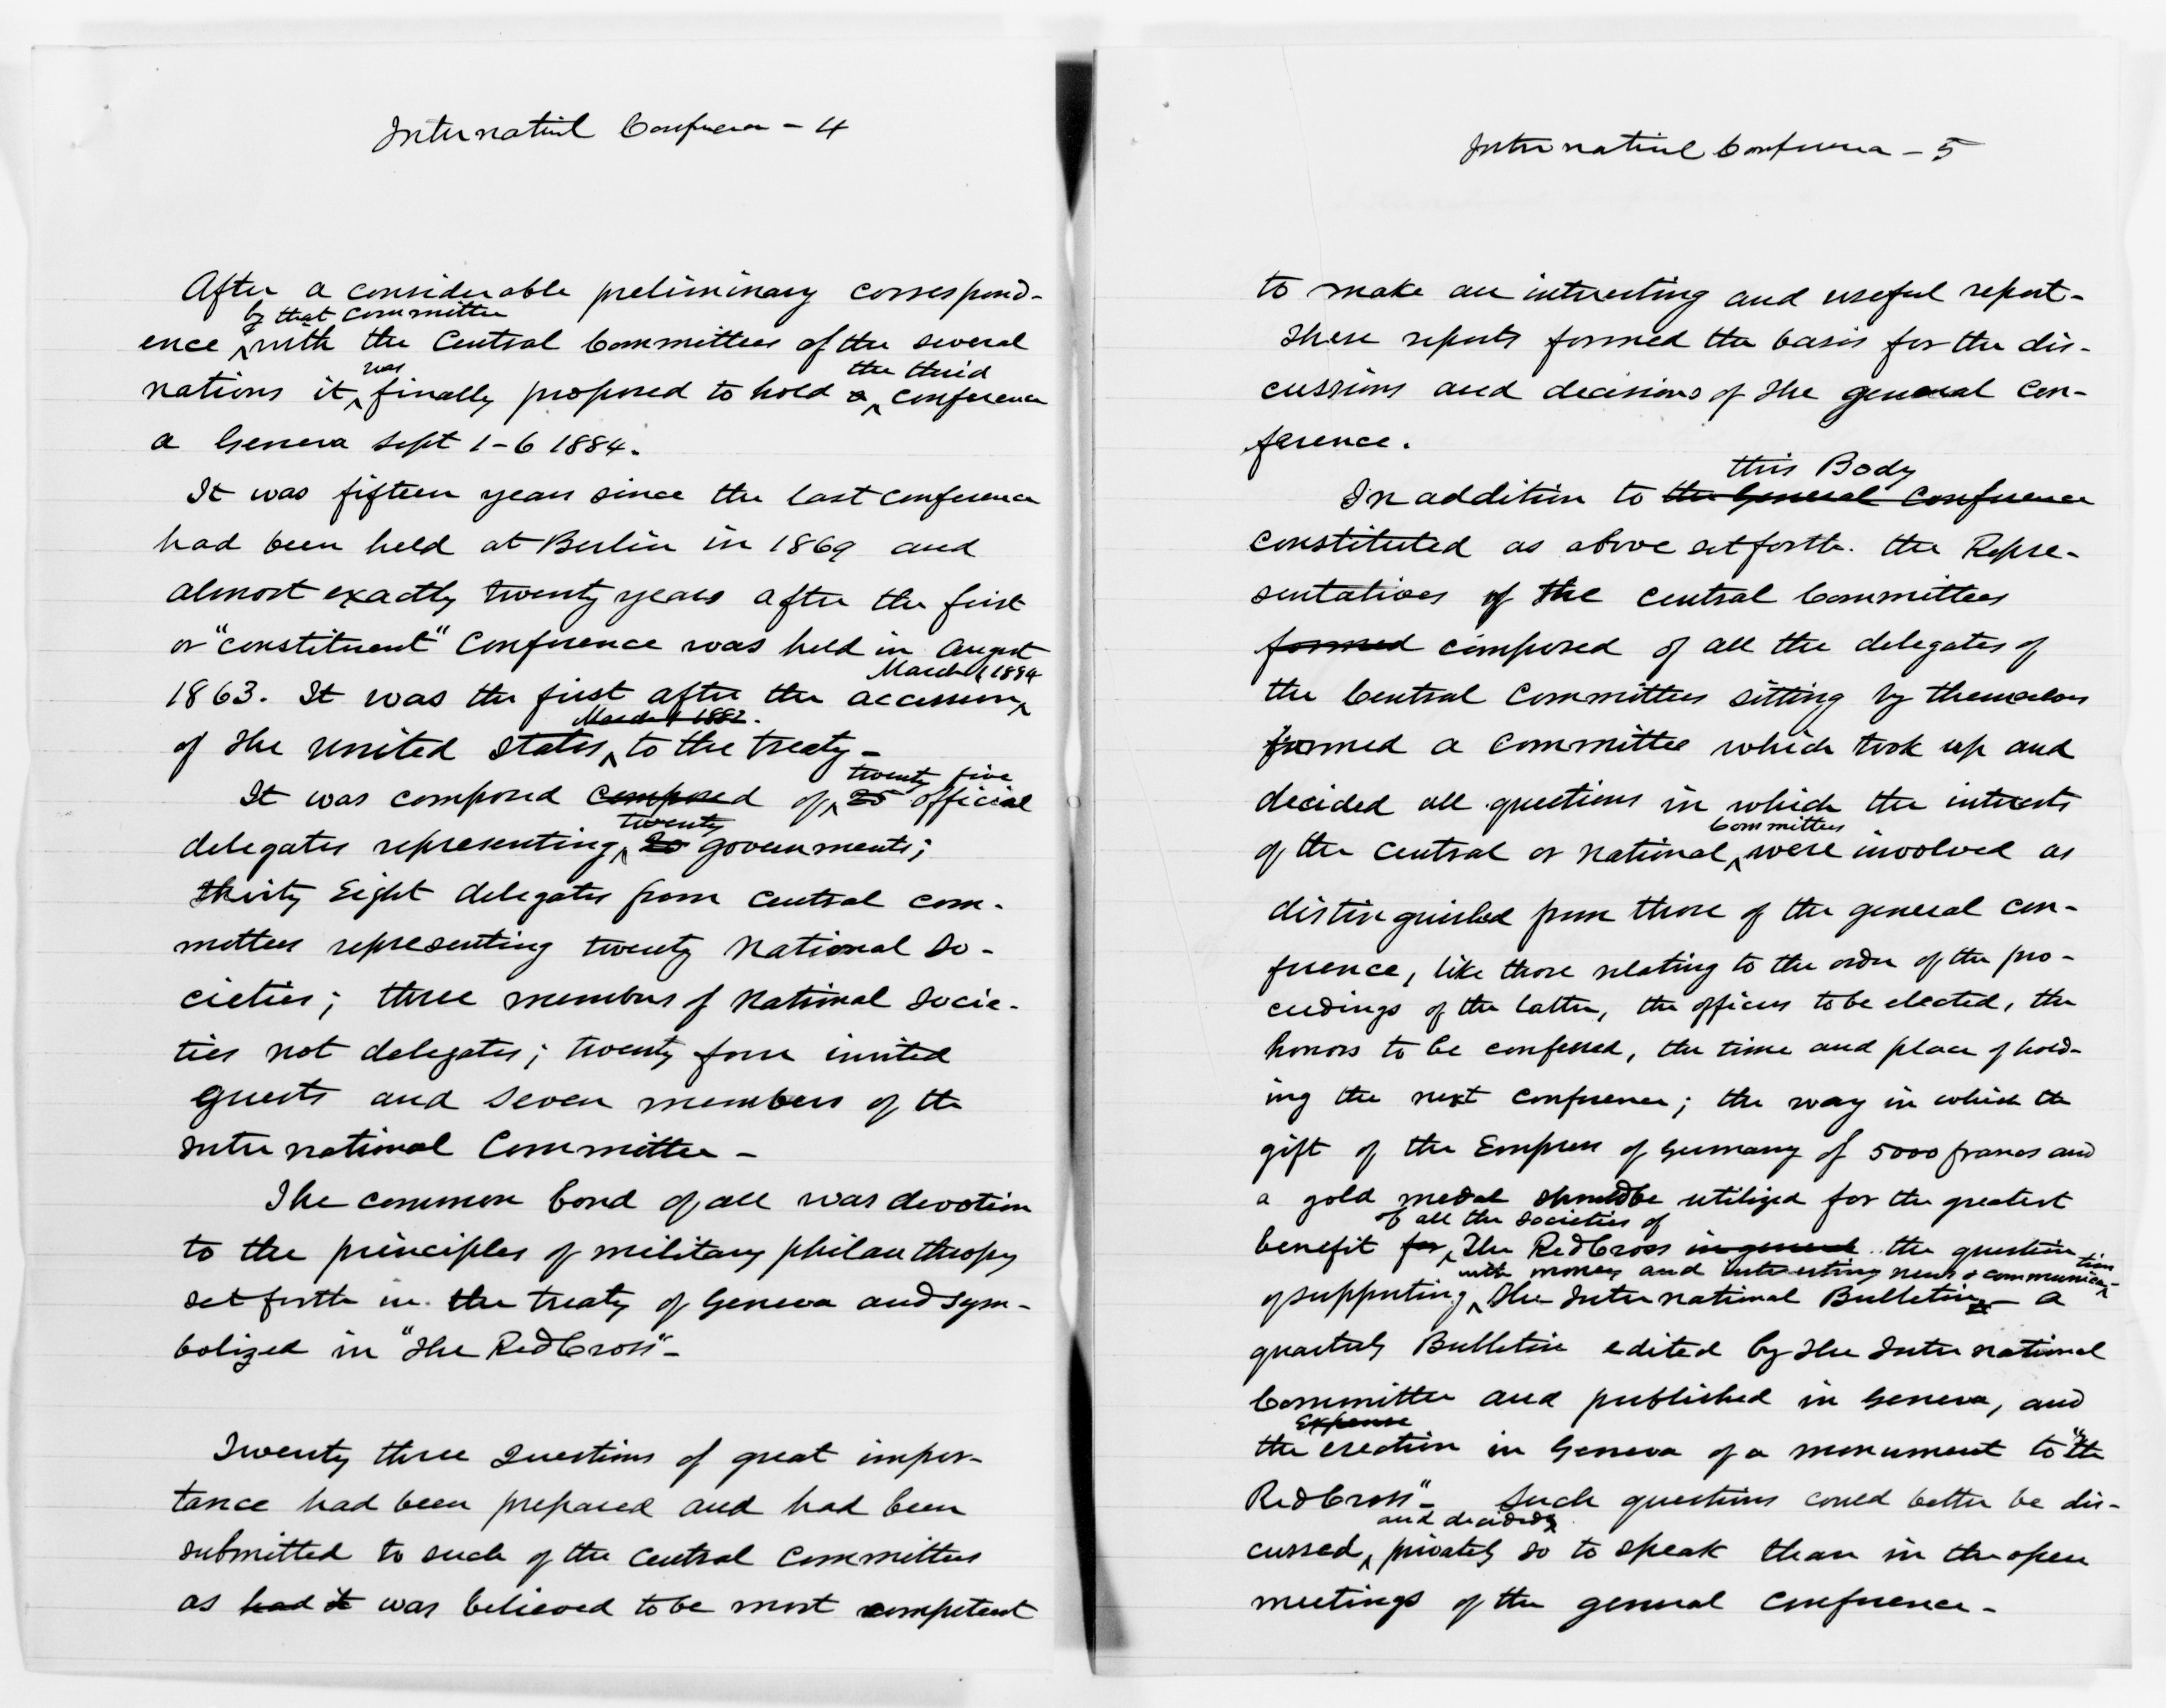 Internatinl Conference - 4
After a considerable preliminary correspond-
by that Committee
ence with the Central Committees of the several
was the third
nations it finally proposed to hold a conference
a Geneva Sept 1-6 1884.
It was fifteen years since the last conference
had been held at Berlin in 1869 and
almost exactly twenty years after the first
or "constituent" Conference was held in August
March 1 1884
1863. It was the first after the accession
March 1 1882.
of the United States to the treaty -
twenty five
It was composed composed of 25 official
twenty
delegates representing 20 governments;
thirty Eight delegates from Central com-
mittees representing twenty National So-
cieties; three members of National Socie-
ties not delegates; twenty four invited
guests and seven members of the
International Committee -
The common bond of all was devotion
to the principles of military philanthropy
set forth in the treaty of Geneva and sym-
bolized in "The Red Cross" -
Twenty three Questions of great impor-
tance had been prepared and had been
submitted to such of the Central Committees
as had it was believed to be most competent
Internatinl Conference - 5
to make an interesting and useful report -
These reports formed the basis for the dis-
cussions and decisions of the general con-
ference.
this Body
In addition to the General Conference
constituted as above set forth. the Repre-
sentatives of the Central Committees
formed composed of all the delegates of
the Central Committees sitting by themselves
formed a committee which took up and
decided all questions in which the interests
Committees
of the central or national were involved as
distinguished from those of the general con-
ference, like those relating to the order of the pro-
ceedings of the latter, the officers to be elected, the
honors to be conferred, the time and place of hold-
ing the next conference; the way in which the
gift of the Empress of Germany of 5000 francs and
a gold medal should be utilized for the greatest
of all the societies of
benefit for The Red Cross in general the question
with money and interesting news & communication
of supporting The International Bulletin - a
quarterly Bulletin edited by the International
Committee and published in Geneva, and
Expense
the erection in Geneva of a monument to "the
Red Cross" - Such questions could better be dis-
and decided
cussed, privately so to speak than in the open
meetings of the general conference -